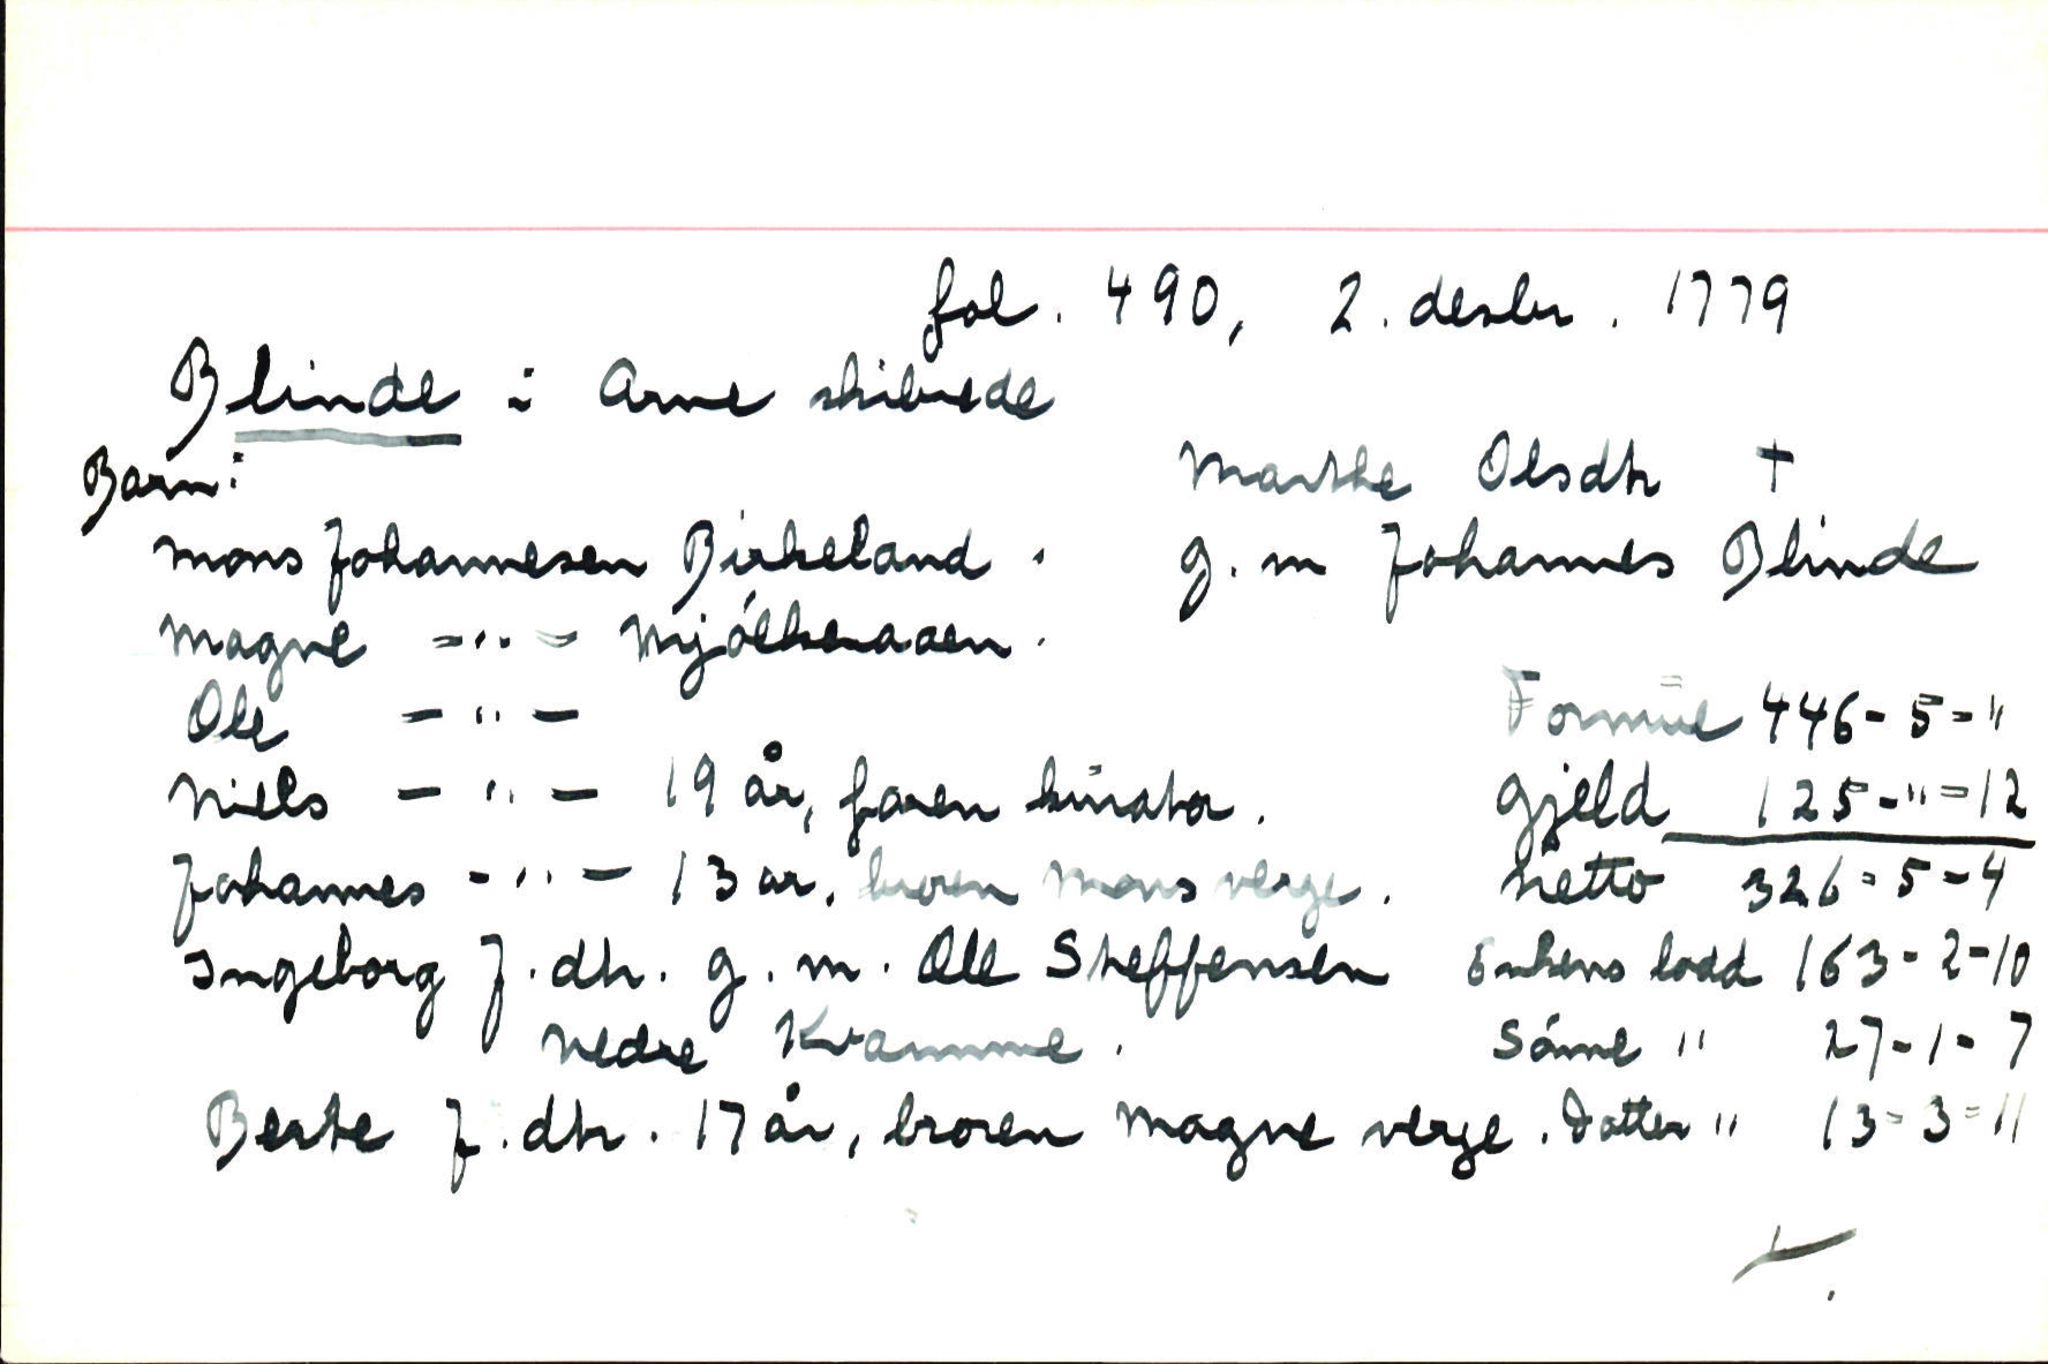 fol. 490, 2. desbr. 1779
Blinde i Arne skibrede
Barn:
Marthe Olsdtr †
Mons Johannesen Birkeland.
g. m Johannes Blinde
Magne -"- Mjölkeraaen.
Ole -"-
Formue 446-5-"
Niels -"- 19 år, faren kurator.
Gjeld 125-"-12
Johannes -"- 13 år. broren Mons verge.
Netto 326-5-4
Ingeborg J. dtr. g. m. Ole Steffensen
Enkens lodd 163-2-10
Nedre Kvamme.
Sönne " 27-1-7
Berte J. dtr. 17 år, broren Magne verge.
Datter " 13-3-11